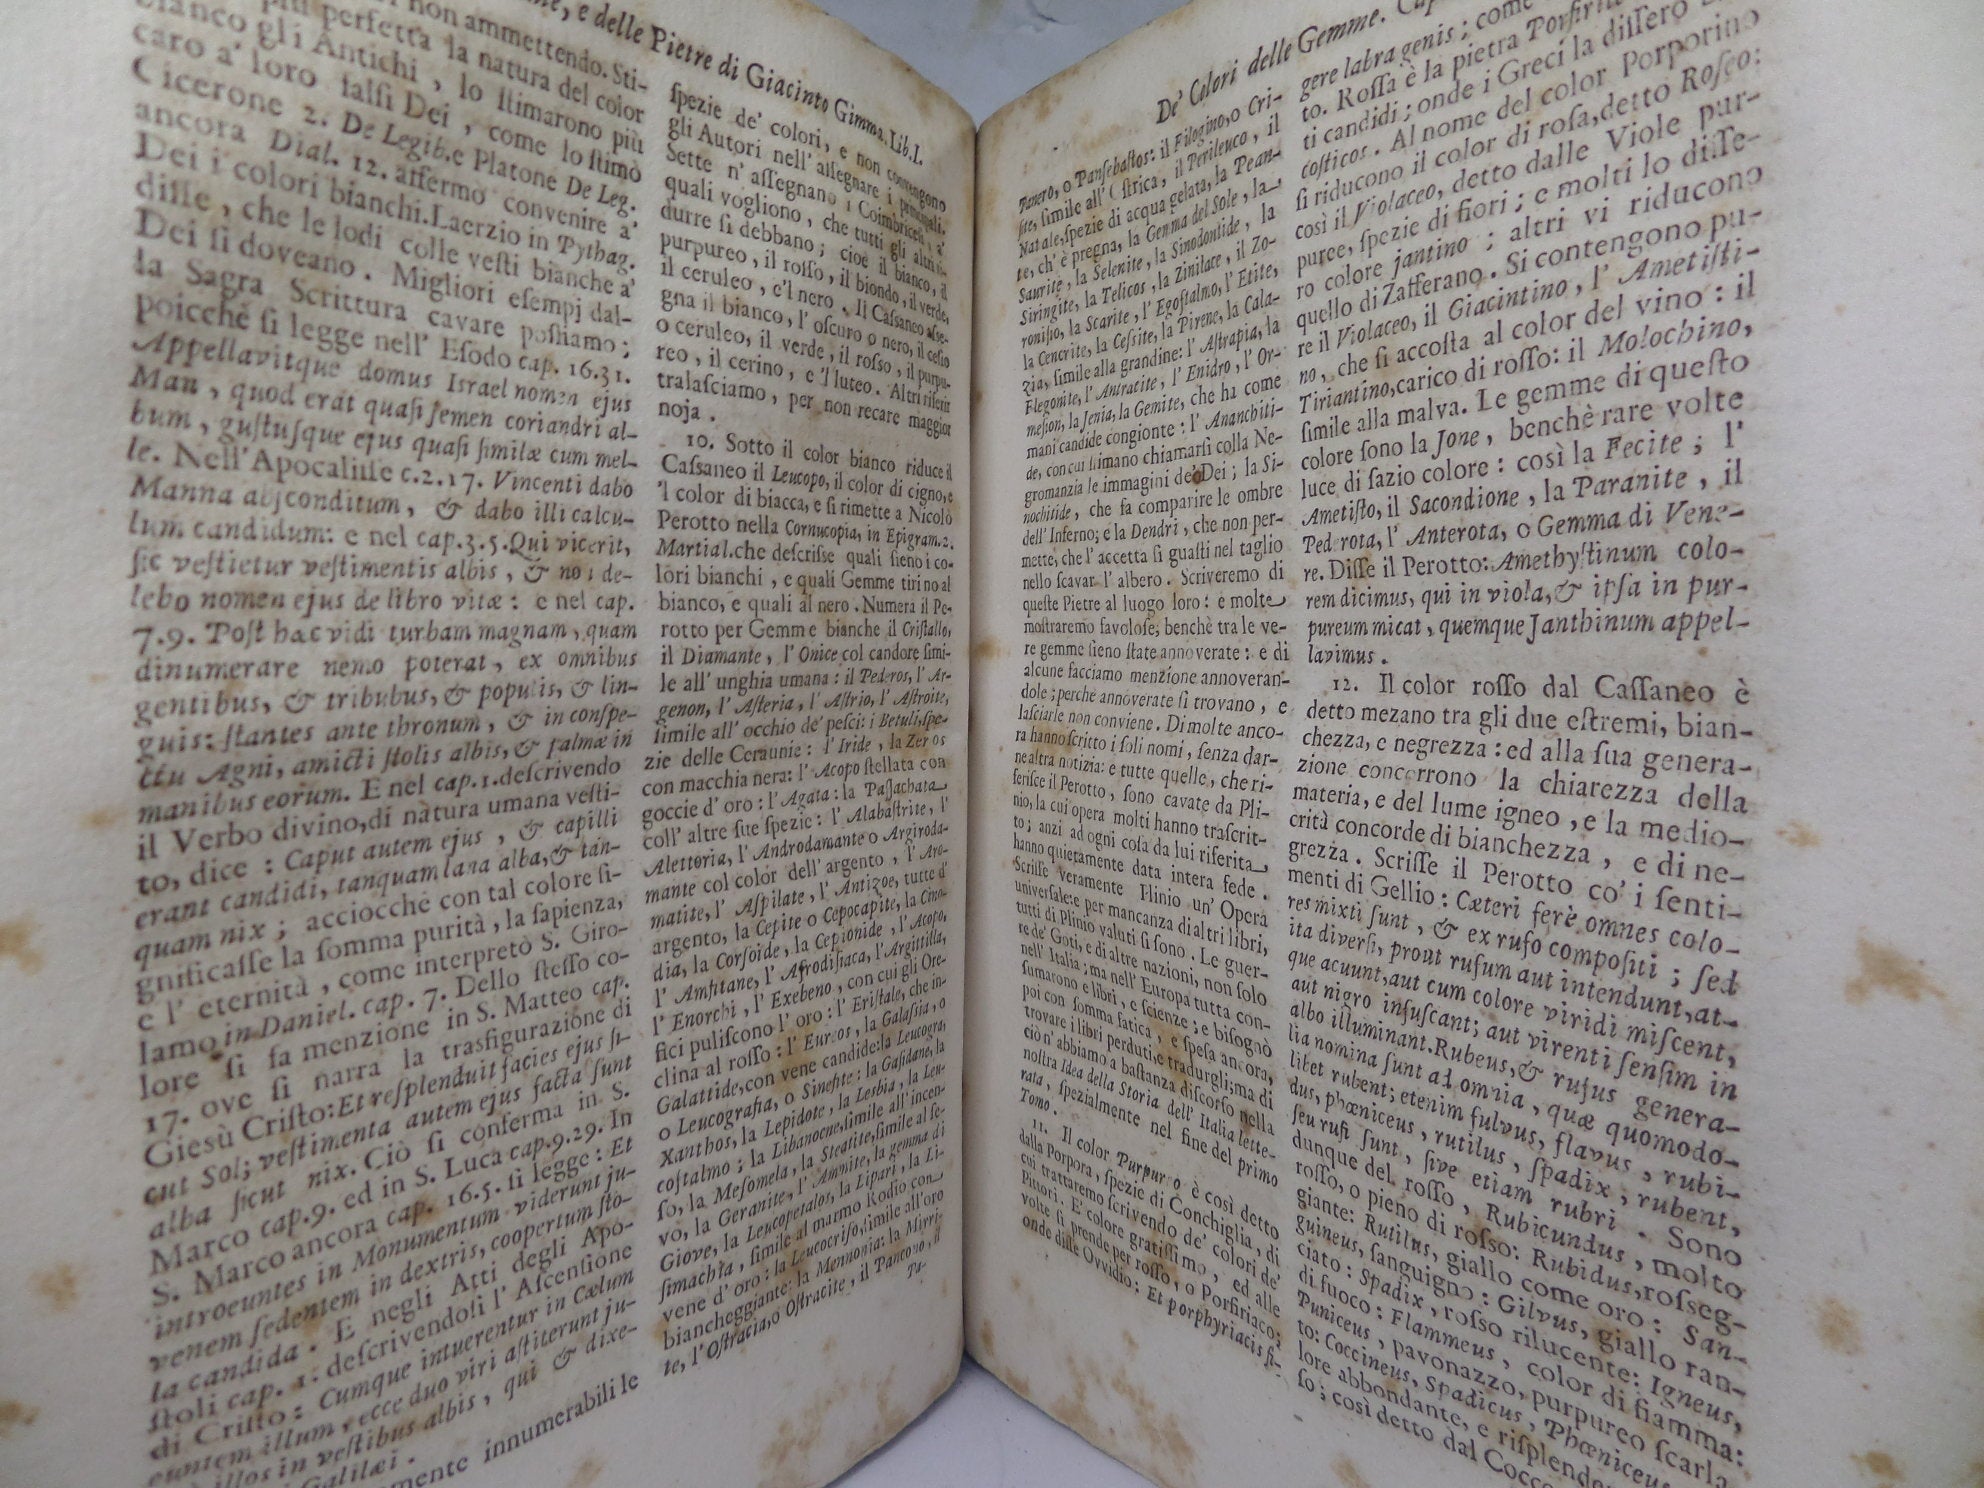 e delle Pietre di Giacinto Gimma. Lib. I.
non ammettendo. Sti-
più perfetta la natura del color
bianco gli Antichi, lo stimarono più
caro a' loro falsi Dei, come lo stimò
Cicerone 2. De Legib. e Platone De Leg.
ancora Dial. 12. affermò convenire a'
Dei i colori bianchi. Laerzio in Pythag.
disse, che le lodi colle vesti bianche a'
Dei si doveano. Migliori esempj dal-
la Sagra Scrittura cavare possiamo;
poicchè si legge nell' Esodo cap. 16.31.
Appellavitque domus Israel nomen ejus
Man, quod erat quasi semen coriandri al-
bum, gustusque ejus quasi similæ cum mel-
le. Nell'Apocalisse c.2.17. Vincenti dabo
Manna absconditum, & dabo illi calcu-
lum candidum: e nel cap.3.5. Qui vicerit,
sic vestietur vestimentis albis, & non de-
lebo nomen ejus de libro vitæ: e nel cap.
7.9. Post hæc vidi turbam magnam, quam
dinumerare nemo poterat, ex omnibus
gentibus, & tribubus, & populis, & lin-
guis: stantes ante thronum, & in conspe-
ctu Agni, amicti stolis albis, & palmæ in
manibus eorum. E nel cap.1. descrivendo
il Verbo divino, di natura umana vesti-
to, dice: Caput autem ejus, & capilli
erant candidi, tanquam lana alba, & tan-
quam nix; acciocchè con tal colore si-
gnificasse la somma purità, la sapienza,
e l' eternità, come interpretò S. Giro-
lamo in Daniel. cap. 7. Dello stesso co-
lore si fa menzione in S. Matteo cap.
17. ove si narra la trasfigurazione di
Giesù Cristo: Et resplenduit facies ejus si-
cut Sol; vestimenta autem ejus facta sunt
alba sicut nix. Ciò si conferma in S.
Marco cap.9. ed in S. Luca cap.9.29. In
S. Marco ancora cap. 16.5. si legge: Et
introeuntes in Monumentum viderunt ju-
venem sedentem in dextris, coopertum sto-
la candida. E negli Atti degli Apo-
stoli cap. 1: descrivendosi l' Ascensione
di Cristo: Cumque intuerentur in Cælum
euntem illum, ecce duo viri astiterunt ju-
illos in vestibus albis, qui & dixe-
Galilæi.
innumerabili le
spezie de' colori, e non convengono
gli Autori nell' assegnare i principali.
Sette n' assegnano i Coimbricesi, a'
quali vogliono, che tutti gli altri ri-
durre si debbano; cioè il bianco, il
purpureo, il rosso, il biondo, il verde,
il ceruleo, e'l nero. Il Cassaneo asse-
gna il bianco, l' oscuro o nero, il cesio
o ceruleo, il verde, il rosso, il purpu-
reo, il cerino, e 'l luteo. Altri riferir
tralasciamo, per non recare maggior
noja.
10. Sotto il color bianco riduce il
Cassaneo il Leucopo, il color di cigno, e
'l color di biacca, e si rimette a Nicolò
Perotto nella Cornucopia, in Epigram. 2.
Martial. che descrisse quali sieno i co-
lori bianchi, e quali Gemme tirino al
bianco, e quali al nero. Numera il Pe-
rotto per Gemme bianche il Cristallo,
il Diamante, l' Onice col candore simi-
le all' unghia umana: il Pederos, l' Ar-
genon, l' Asteria, l' Astrio, l' Astroite,
simile all' occhio de' pesci: i Betuli, spe-
zie delle Ceraunie: l' Iride, la Zeros
con macchia nera: l' Acopo stellata con
goccie d' oro: l' Agata: la Passachata
coll' altre sue spezie: l' Alabastrite, l'
Alettoria, l' Androdamante o Argiroda-
mante col color dell' argento, l' Aro-
matite, l' Aspilate, l' Antizoe, tutte d'
argento, la Cepite o Cepocapite, la Cina-
dia, la Corsoide, la Cepionide, l' Acopo,
l' Amfitane, l' Afrodisiaca, l' Argitilla,
l' Enorchi, l' Exebeno, con cui gli Ore-
fici puliscono l' oro: l' Eristale, che in-
clina al rosso: l' Eureos, la Galassia, o
Galattide, con vene candide: la Leucogra,
o Leucografia, o Sinefite: la Gasidane, la
Xanthos, la Lepidote, la Lesbia, la Leu-
costalmo; la Libanocne, simile all'incen-
so, la Mesomela, la Steatite, simile al se-
vo, la Geranite, l' Ammite, la gemma di
Giove, la Leucopetalos, la Lipari, la Li-
simachia, simile al marmo Rodio con
vene d' oro: la Leucocriso, simile all'oro
biancheggiante: la Memnonia: la Mirri-
te, l'Ostracia, o Ostracite, il Pancono, il
Pa-
De' Colori delle Gemme.
Panero, o Pansebastos: il Filogino, o Cri-
site, simile all' Ostrica, il Perileuco, il
Natale, spezie di acqua gelata, la Pean-
te, ch' è pregna, la Gemma del Sole, la
Saurite, la Selenite, la Sinodontide, la
Siringite, la Telicos, la Zinilace, il Zo-
ronisio, la Scarite, l' Egostalmo, l' Etite,
la Cencrite, la Cessite, la Pirene, la Cala-
zia, simile alla grandine: l' Astrapia, la
Flegonite, l' Antratite, l' Enidro, l' Or-
mesion, la Jenia, la Gemite, che ha come
mani candide congionte: l' Ananchiti-
de, con cui stimano chiamarsi colla Ne-
gromanzia le immagini de' Dei; la Si-
nochitide, che fa comparire le ombre
dell' Inferno; e la Dendri, che non per-
mette, che l' accetta si guasti nel taglio
nello scavar l' albero. Scriveremo di
queste Pietre al luogo loro: e molte
mostraremo favolose; benchè tra le ve-
re gemme sieno state annoverate: e di
alcune facciamo menzione annoveran-
dole; perchè annoverate si trovano, e
lasciarle non conviene. Di molte anco-
ra hanno scritto i soli nomi, senza dar-
ne altra notizia: e tutte quelle, che ri-
ferisce il Perotto, sono cavate da Pli-
nio, la cui opera molti hanno trascrit-
to; anzi ad ogni cosa da lui riferita
hanno quietamente data intera fede.
Scrisse veramente Plinio un' Opera
universale; e per mancanza di altri libri,
tutti di Plinio valuti si sono. Le guer-
re de' Goti, e di altre nazioni, non solo
nell' Italia; ma nell' Europa tutta con-
sumarono e libri, e scienze; e bisognò
poi con somma fatica, e spesa ancora,
trovare i libri perduti, e tradurgli; ma di
ciò n' abbiamo a bastanza discorso nella
nostra Idea della Storia dell' Italia lette-
rata, spezialmente nel fine del primo
Tomo.
11. Il color Purpureo è così detto
dalla Porpora, spezie di Conchiglia, di
cui trattaremo scrivendo de' colori de'
Pittori. E' colore gratissimo, ed alle
volte si prende per rosso, o Porfiriaco;
onde disse Ovvidio: Et porphyriacis fi-
gere labra genis; come
to. Rossa è la pietra Porfirite
ti candidi; onde i Greci la dissero
costicos. Al nome del color Porporino
si riducono il color di rosa, detto Roseo:
così il Violaceo, detto dalle Viole pur-
puree, spezie di fiori; e molti lo disse-
ro colore jantino; altri vi riducono
quello di Zafferano. Si contengono pu-
re il Violaceo, il Giacintino, l' Ametisti-
no, che si accosta al color del vino: il
Tiriantino, carico di rosso: il Molochino,
simile alla malva. Le gemme di questo
colore sono la Jone, benchè rare volte
luce di sazio colore: così la Fecite; l'
Ametisto, il Sacondione, la Paranite, il
Pederota, l' Anterota, o Gemma di Vene-
re. Disse il Perotto: Amethystinum colo-
rem dicimus, qui in viola, & ipsa in pur-
pureum micat, quemque Janthinum appel-
lavimus.
12. Il color rosso dal Cassaneo è
detto mezano tra gli due estremi, bian-
chezza, e negrezza: ed alla sua genera-
zione concorrono la chiarezza della
materia, e del lume igneo, e la medio-
crità concorde di bianchezza, e di ne-
grezza. Scrisse il Perotto co' i senti-
menti di Gellio: Cæteri ferè omnes colo-
res mixti sunt, & ex rufo compositi; sed
ita diversi, prout rufum aut intendunt, at-
que acuunt, aut cum colore viridi miscent,
aut nigro infuscant; aut virenti sensim in
albo illuminant. Rubeus, & rufus genera-
lia nomina sunt ad omnia, quæ quomodo-
libet rubent; etenim fulvus, flavus, rubi-
dus, phœniceus, rutilus, spadix, rubent,
seu rufi sunt, sive etiam rubri. Sono
dunque del rosso, Rubicundus, molto
rosso, o pieno di rosso: Rubidus, rosseg-
giante: Rutilus, giallo come oro: San-
guineus, sanguigno: Gilvus, giallo ran-
ciato: Spadix, rosso rilucente: Igneus,
di fuoco: Flammeus, color di fiamma:
Puniceus, pavonazzo, purpureo scarla
to: Coccineus, Spadicus, Phœniceus
lore abbondante, e risplende
so; così detto dal Cocco